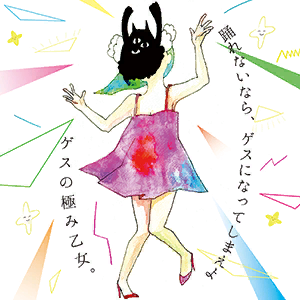 踊れないなら、ゲスになってしまえよ
ゲスの極み乙女。